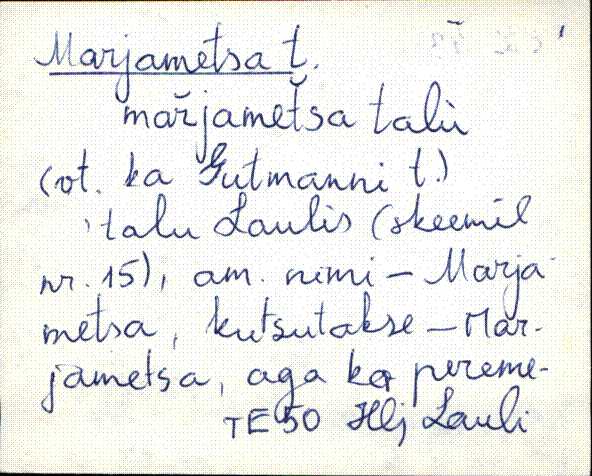 Marjametsa t.
maŕjametsa talù
(vt. ka Gutmanni t.)
talu Laulis (skeemil
nr. 15), am. nimi – Marja-
metsa, kutsutakse – Mar-
jametsa, aga ka pereme-
TE 50 Hlj Lauli